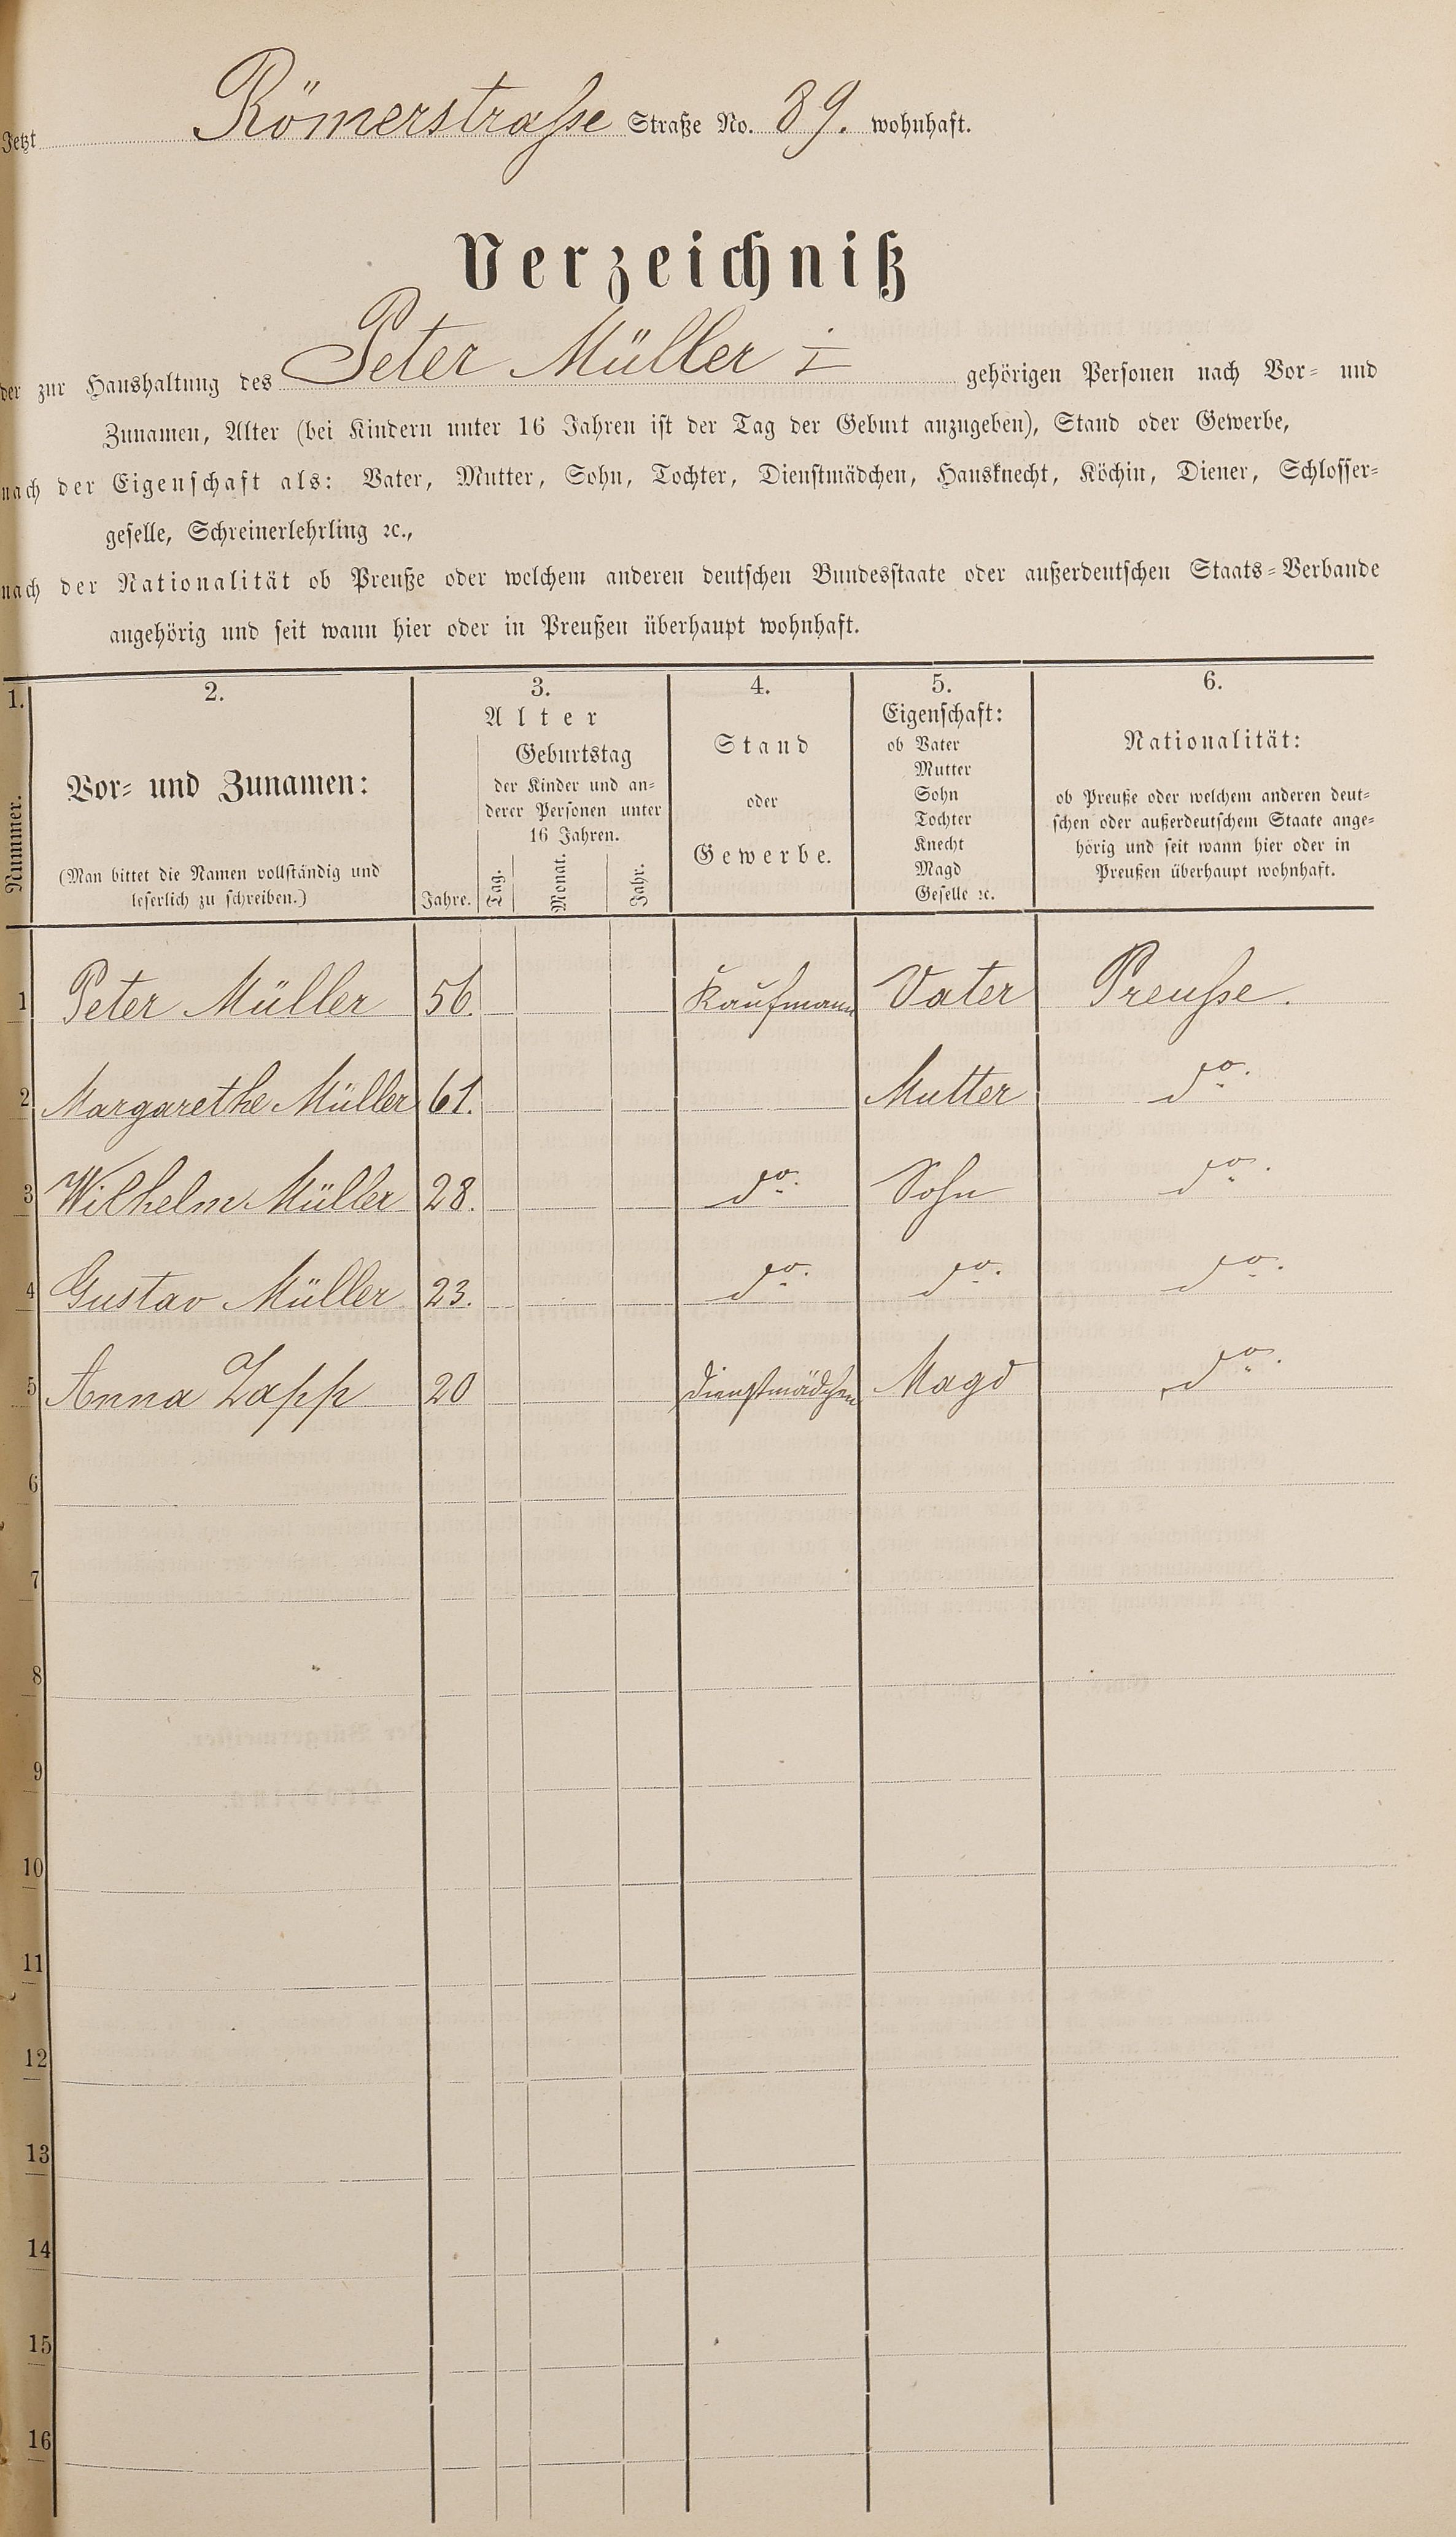 Jetzt Römerstrasse Straße No. 39. wohnhaft.
Verzeichniß
der zur Haushaltung des Peter Müller I gehörigen Personen nach Vor- und
Zunamen, Alter (bei Kindern unter 16 Jahren ist der Tag der Geburt anzugeben), Stand oder Gewerbe,
nach der Eigenschaft als: Vater, Mutter, Sohn, Tochter, Dienstmädchen, Hausknecht, Köchin, Diener, Schlosser-
geselle, Schreinerlehrling ꝛc.,
nach der Nationalität ob Preuße oder welchem anderen deutschen Bundesstaate oder außerdeutschen Staats-Verbande
angehörig und seit wann hier oder in Preußen überhaupt wohnhaft.
1. 2. 3. 4. 5. 6.
Nummer.
Vor- und Zunamen:
(Man bittet die Namen vollständig und
leserlich zu schreiben.)
Alter
Jahre.
Geburtstag
der Kinder und an-
derer Personen unter
16 Jahren.
Tag. Monat. Jahr.
Stand
oder
Gewerbe.
Eigenschaft:
ob Vater
Mutter
Sohn
Tochter
Knecht
Magd
Geselle ꝛc.
Nationalität:
ob Preuße oder welchem anderen deut-
schen oder außerdeutschem Staate ange-
hörig und seit wann hier oder in
Preußen überhaupt wohnhaft.
1 Peter Müller 56. Kaufmann Vater Preusse.
2 Margarethe Müller 61. Mutter do.
3 Wilhelm Müller 28. do. Sohn do.
4 Gustav Müller 23. do. do. do.
5 Anna Zapp 20 Dienstmädchen Magd do.
6
7
8
9
10
11
12
13
14
15
16